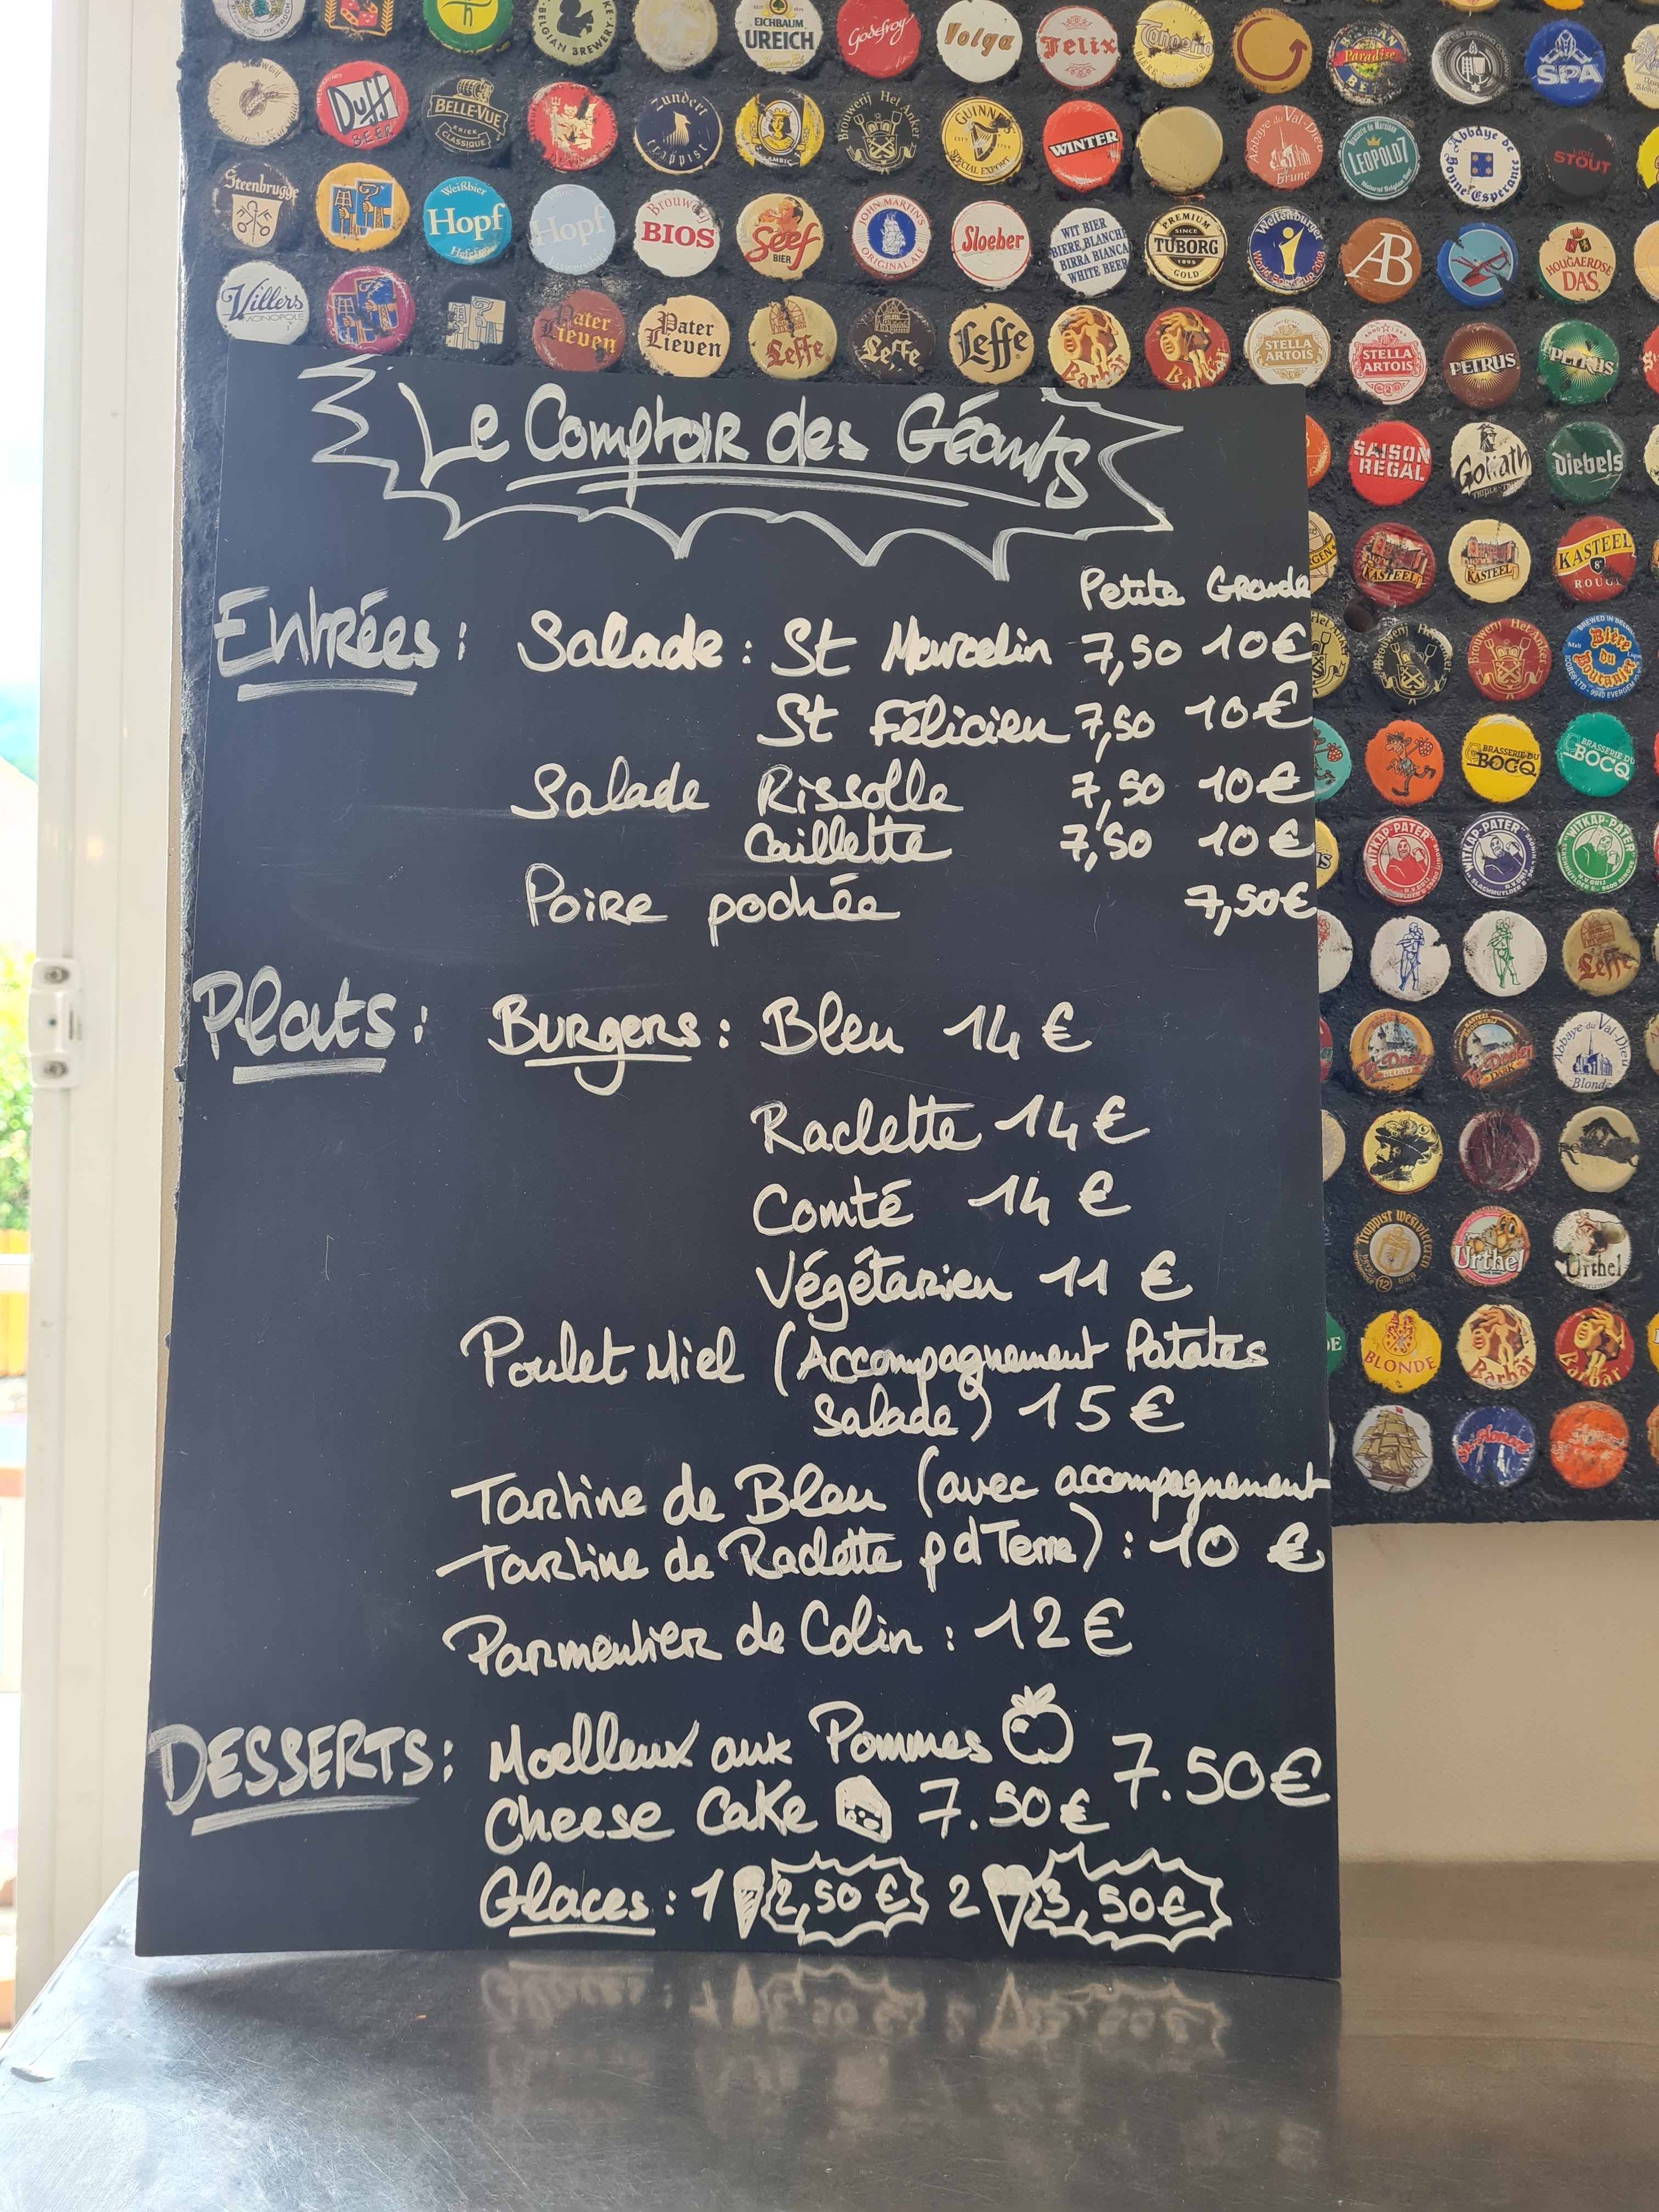 EICHBAUM
UREICH
Godefroy
Volga
Felix
Paradise
SPA
Duff
BEER
BELLE-VUE
KRIEK
CLASSIQUE
Zundert
trappist
Brouwerij Het Anker
GUINNESS
SPECIAL EXPORT
WINTER
Abbaye du Val-Dieu
Brune
LEOPOLD7
Abbaye de
Bonne Esperance
STOUT
Steenbrugge
Weißbier
Hopf
Hopf
Brouwerij
BIOS
Seef
BIER
JOHN MARTIN'S
ORIGINAL ALE
Sloeber
WIT BIER
BIERE BLANCHE
BIRRA BIANCA
WHITE BEER
PREMIUM
SINCE
TUBORG
1895
GOLD
Weltenburger
AB
HOUGAERDSE
DAS
Villers
MONOPOLE
Pater
Lieven
Pater
Lieven
Leffe
Leffe
Leffe
Barbar
Barbar
STELLA
ARTOIS
STELLA
ARTOIS
PETRUS
PETRUS
Le Comptoir des Géants
SAISON
REGAL
Goliath
Diebels
KASTEEL
KASTEEL
KASTEEL
ROUGE
Petite Grande
Entrées : Salade : St Marcelin 7,50 10€
St Félicien 7,50 10€
Salade Rissolle 7,50 10€
Caillette 7,50 10€
Poire pochée 7,50€
Brouwerij Het Anker
Bière
du
Boucanier
BRASSERIE DU
BOCQ
BRASSERIE DU
BOCQ
WITKAP-PATER
WITKAP-PATER
WITKAP-PATER
Leffe
Plats : Burgers : Bleu 14€
Raclette 14€
Comté 14€
Végétarien 11€
Poulet Miel (Accompagnement Patates
salade) 15€
Tartine de Bleu (avec accompagnement
Tartine de Raclette p d Terre) : 10€
Parmentier de Colin : 12€
Abbaye du Val-Dieu
Blonde
Trappist Westvleteren
12
Urthel
Urthel
BLONDE
Barbar
Barbar
DESSERTS : Moelleux aux Pommes 7.50€
Cheese Cake 7.50€
Glaces : 1 2,50€ 2 3,50€